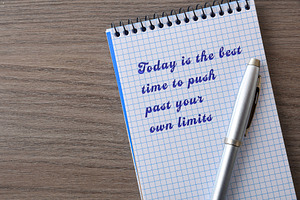 Today is the best
time to push
past your
own limits